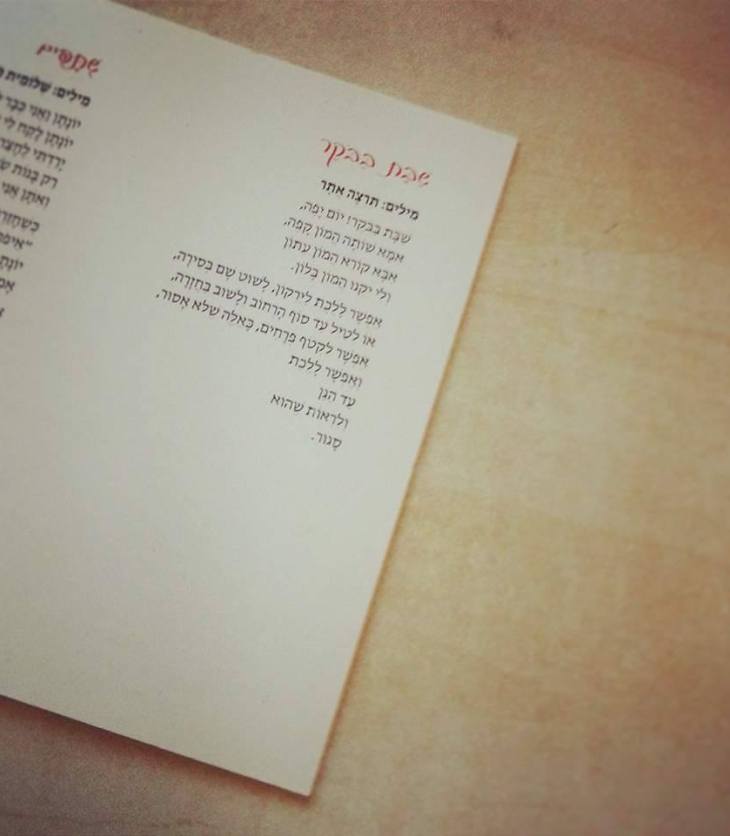 שַׁבָּת בַּבֹּקֶר
מילים: תרצה אתר
שַׁבָּת בַּבֹּקֶר! יוֹם יָפֶה,
אִמָּא שׁוֹתָה הֲמוֹן קָפֶה,
אַבָּא קוֹרֵא הֲמוֹן עִתּוֹן
וְלִי יִקְנוּ הֲמוֹן בָּלוֹן.
אֶפְשָׁר לָלֶכֶת לַיַּרְקוֹן, לָשׁוּט שָׁם בְּסִירָה,
אוֹ לְטַיֵּל עַד סוֹף הָרְחוֹב וְלָשׁוּב בַּחֲזָרָה,
אֶפְשָׁר לִקְטֹף פְּרָחִים, כָּאֵלֶּה שֶׁלֹּא אָסוּר,
וְאֶפְשָׁר לָלֶכֶת
עַד הַגַּן
וְלִרְאוֹת שֶׁהוּא
סָגוּר.
מילים: שלומית
יוֹנָתָן וַאֲנִי כְּבָר
יוֹנָתָן לָקַח לִי
יָרַדְתִּי
רַק בָּנוֹת